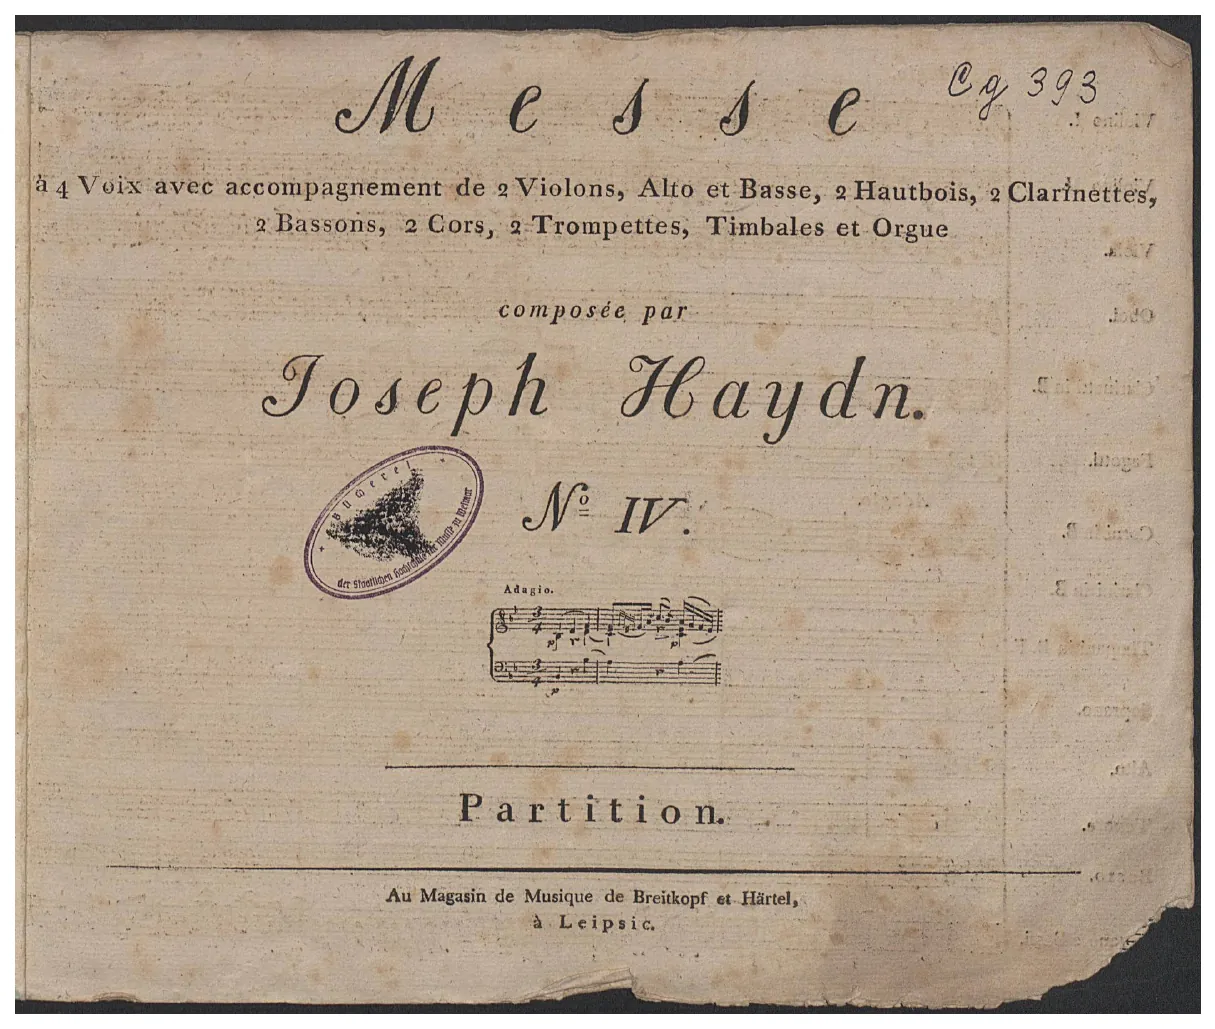 Cg 393
Messe
à 4 Voix avec accompagnement de 2 Violons, Alto et Basse, 2 Hautbois, 2 Clarinettes,
2 Bassons, 2 Cors, 2 Trompettes, Timbales et Orgue
composée par
Joseph Haydn.
No IV.
Bücherei
der Staatlichen Hochschule für Musik zu Weimar
Adagio.
3/4
p
p
3/4
p
Partition.
Au Magasin de Musique de Breitkopf et Härtel,
à Leipsic.